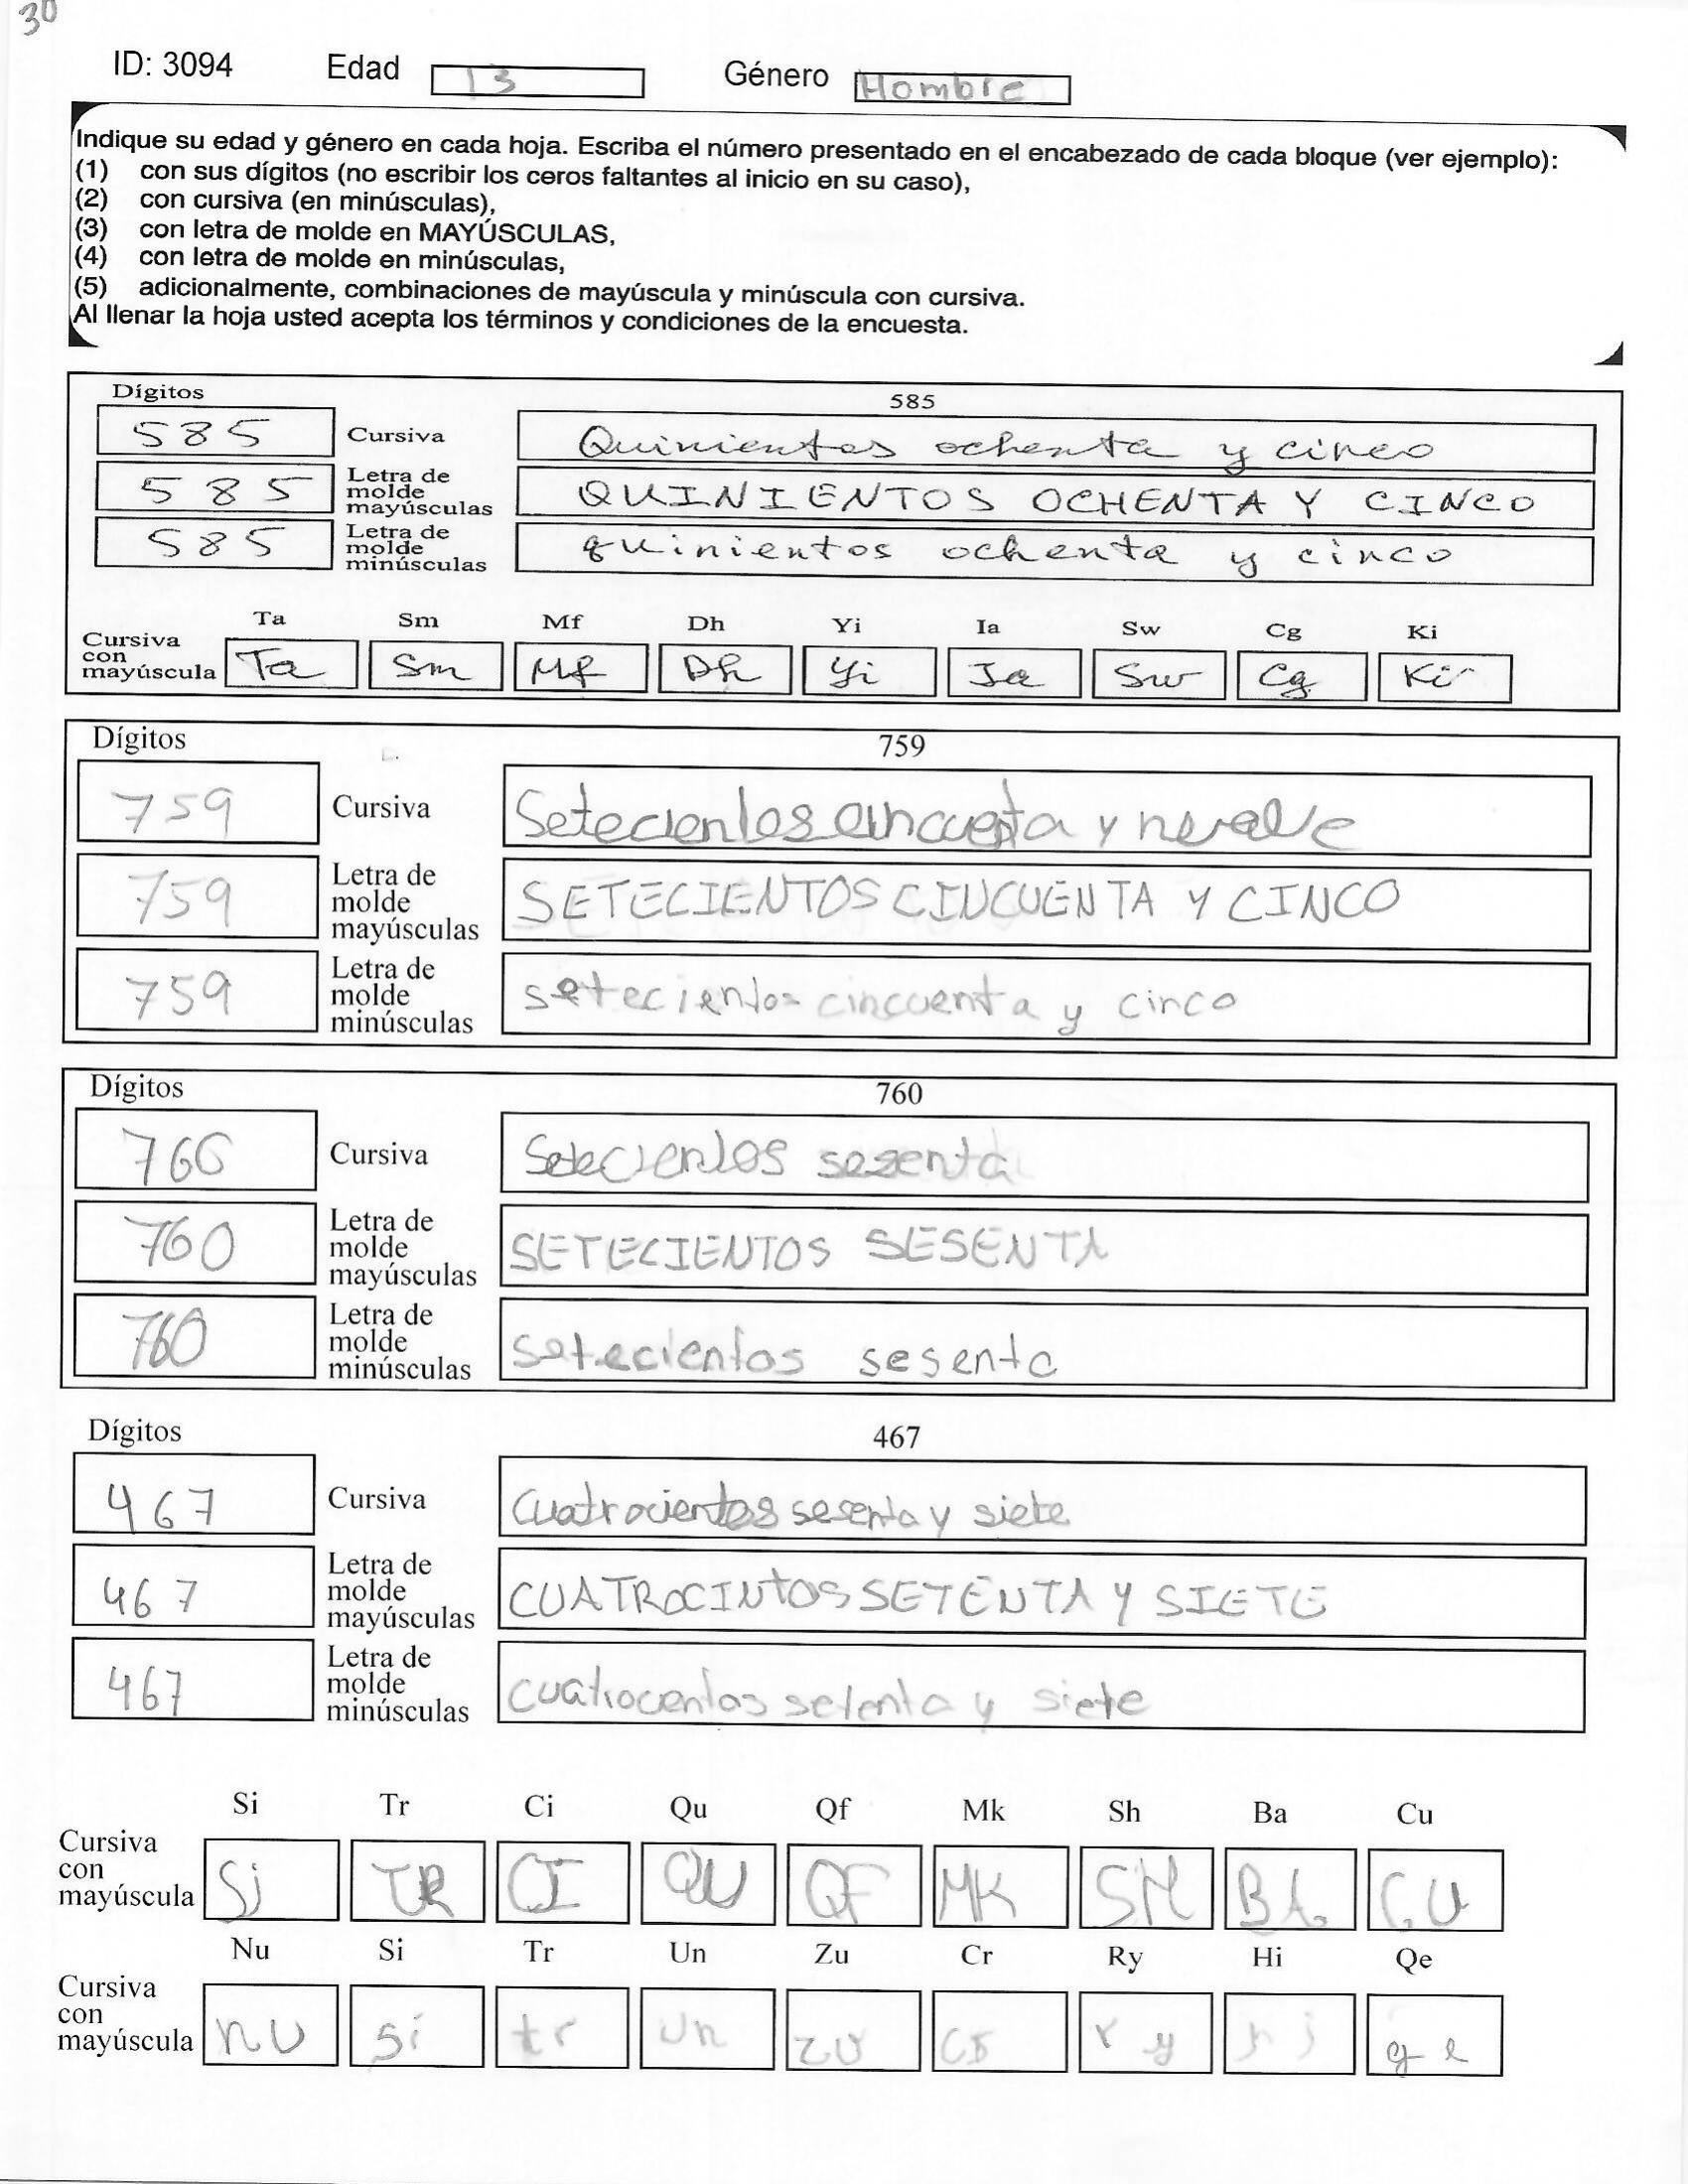 30
ID: 3094 Edad 13 Género Hombre
Indique su edad y género en cada hoja. Escriba el número presentado en el encabezado de cada bloque (ver ejemplo):
(1) con sus dígitos (no escribir los ceros faltantes al inicio en su caso),
(2) con cursiva (en minúsculas),
(3) con letra de molde en MAYÚSCULAS,
(4) con letra de molde en minúsculas,
(5) adicionalmente, combinaciones de mayúscula y minúscula con cursiva.
Al llenar la hoja usted acepta los términos y condiciones de la encuesta.
Dígitos 585
585 Cursiva Quinientos ochenta y cinco
585 Letra de molde mayúsculas QUINIENTOS OCHENTA Y CINCO
585 Letra de molde minúsculas quinientos ochenta y cinco
Ta Sm Mf Dh Yi Ia Sw Cg Ki
Cursiva con mayúscula Ta Sm Mf Dh Yi Ia Sw Cg Ki
Dígitos 759
759 Cursiva Setecientos cincuenta y
759 Letra de molde mayúsculas SETECIENTOS CINCUENTA Y CINCO
759 Letra de molde minúsculas setecientos cincuenta y cinco
Dígitos 760
760 Cursiva Setecientos sesenta
760 Letra de molde mayúsculas SETECIENTOS SESENTA
760 Letra de molde minúsculas setecientos sesenta
Dígitos 467
467 Cursiva Cuatrocientos sesenta y siete
467 Letra de molde mayúsculas CUATROCINTOS SETENTA Y SIETE
467 Letra de molde minúsculas cuatrocentos setenta y siete
Si Tr Ci Qu Qf Mk Sh Ba Cu
Cursiva con mayúscula Si TR CI QU QF MK SH BA CU
Nu Si Tr Un Zu Cr Ry Hi Qe
Cursiva con mayúscula nu si tr un zu cr ry hi qe